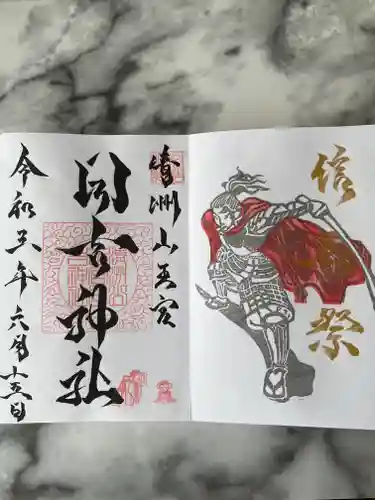 信
祭
清洲山王宮
日吉神社
令和五年六月十五日